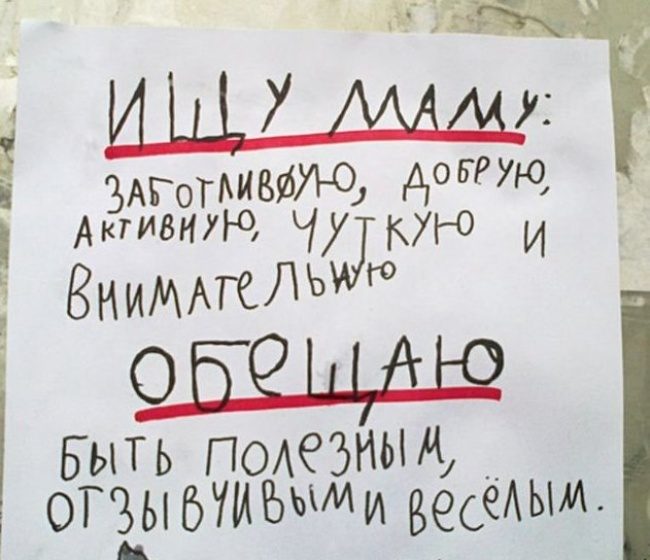 ИЩУ МАМУ:
ЗАБОТЛИВУЮ, ДОБРУЮ,
АКТИВНУЮ, ЧУТКУЮ И
ВНИМАТЕЛЬНУЮ
ОБЕЩАЮ
БЫТЬ ПОЛЕЗНЫМ,
ОТЗЫВЧИВЫМ И ВЕСЁЛЫМ.